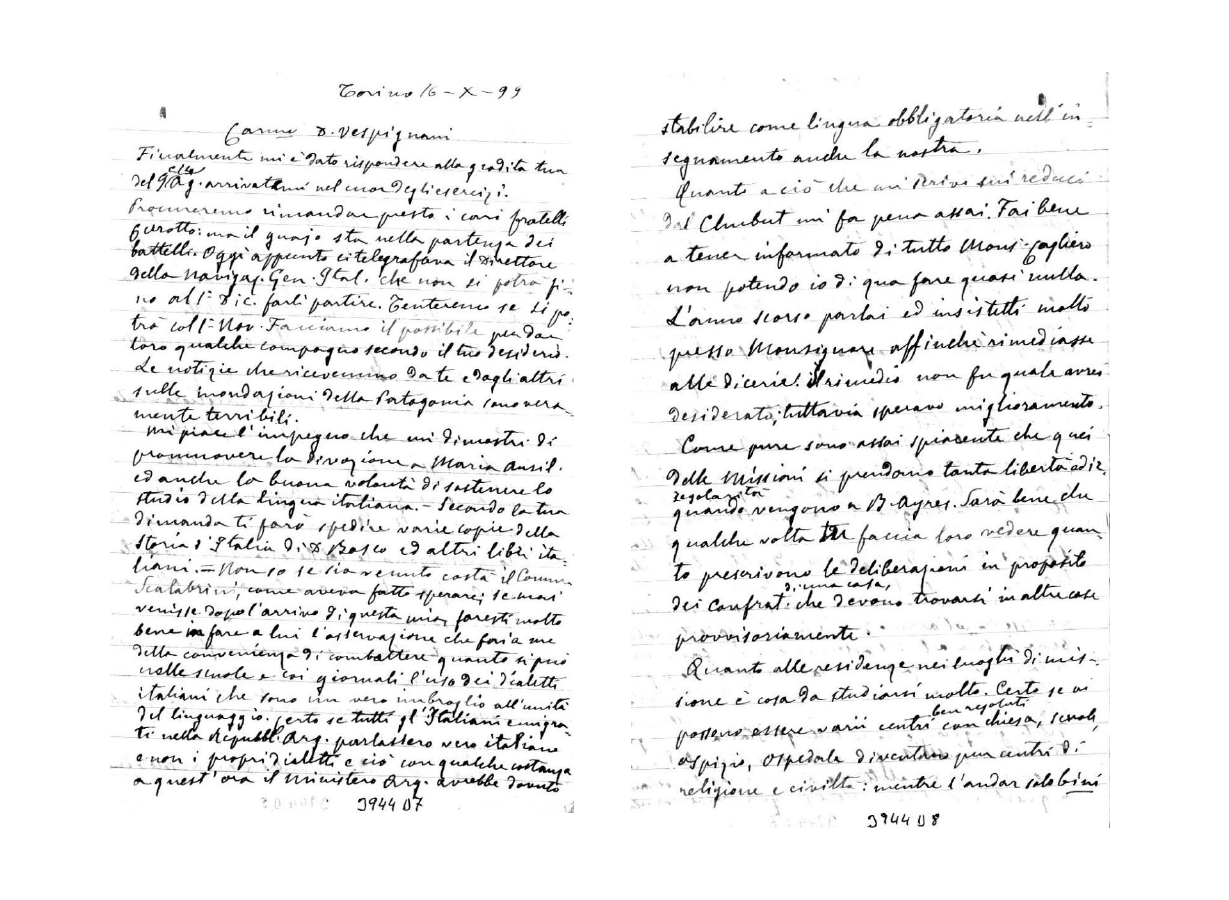 Torino 16-X-99
Carmo D. Vespignani
Finalmente mi è dato rispondere alla gradita tua
del 9 Ag. arrivatami nel cuor degli esercizi.
Procureremo rimandar presto i cari fratelli
Gherotto: ma il guajo sta nella partenza dei
battelli. Oggi appunto ci telegrafava il Direttore
della Navigaz. Gen. Ital. che non si potrà fi-
no al 1° Dic. farli partire. Tenteremo se si po-
trà col 1° Nov. Facciamo il possibile per dar
loro qualche compagno secondo il tuo desiderio.
Le notizie che ricevemmo da te e dagli altri
sulle inondazioni della Patagonia sono vera-
mente terribili.
Mi piace l'impegno che mi dimostri di
promuovere la divozione a Maria Ausil.
ed anche la buona volontà di sostenere lo
studio della lingua italiana. - Secondo la tua
dimanda ti farò spedire varie copie della
Storia d'Italia di D. Bosco ed altri libri ita-
liani. = Non so se sia venuto costà il Comm.
Scalabrini, come aveva fatto sperare; se mai
venisse dopo l'arrivo di questa mia, faresti molto
bene fare a lui l'osservazione che faria me
della convenienza di combattere quanto si può
nelle scuole e coi giornali l'uso dei dialetti
italiani che sono un vero imbroglio all'unità
del linguaggio. Certo se tutti gl'Italiani emigra-
ti nella Repubbl. Arg. parlassero vero italiano
e non i propri dialetti e ciò con qualche costanza
a quest'ora il ministero Arg. avrebbe dovuto
3944 D7
stabilire come lingua obbligatoria nell'in-
segnamento anche la nostra.
Quanto a ciò che mi scrivi sui reduci
dal Chubut mi fa pena assai. Fai bene
a tener informato di tutto Mons. Cagliero
non potendo io di qua fare quasi nulla.
L'anno scorso parlai ed insistetti molto
presso Monsignore affinchè rimediasse
alle dicerie. il rimedio non fu quale avrei
desiderato; tuttavia speravo miglioramento.
Come pure sono assai spiacente che quei
delle Missioni si prendano tanta libertà
regolarità
quando vengono a B. Ayres. Sarà bene che
qualche volta faccia loro vedere quan-
to prescrivono le deliberazioni in proposito
di una casa,
dei confrat. che devono trovarsi in altre case
provvisoriamente.
Quanto alle residenze nei luoghi di mis-
sione è cosa da studiarsi molto. Certo se vi
ben regolati
possono essere varii centri con chiesa, scuola,
ospizio, ospedale diventano pur centri di
religione e civiltà: mentre l'andar solo bini
3944 D8